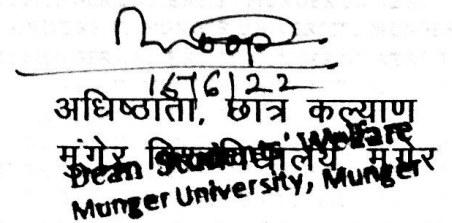 15/6/22
अधिष्ठाता, छात्र कल्याण
मुंगेर विश्वविद्यालय मुंगेर
Dean Students' Welfare
Munger University, Munger